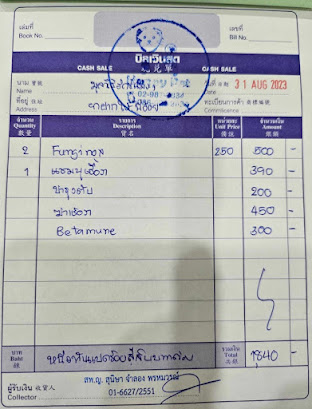 เล่มที่
Book No.
เลขที่
Bill No.
บิลเงินสด
CASH SALE 現兑單 CASH SALE
นาม 寶號
Name
วันที่ 日期 31 AUG 2023
Date
ที่อยู่ 住址
Address
ทะเบียนการค้า 商標編號
Commerce
จำนวน
Quantity
數量
รายการ
Description
貨名
หน่วยละ
Unit Price
價註
จำนวนเงิน
Amount
銀額
2 Funginox 250 500 -
1 แชมพูเชื้อรา 390 -
บำรุงตับ 200 -
ฆ่าเชื้อรา 450 -
Betamune 300 -
บาท
Baht
銀
หนึ่งพันแปดร้อยสี่สิบบาทถ้วน
รวมเงิน
Total
1,840 -
ผู้รับเงิน 收貨人
Collector
สพ.ญ. สุนิษา จำลอง พรหมวรรณ์
01-6627/2551